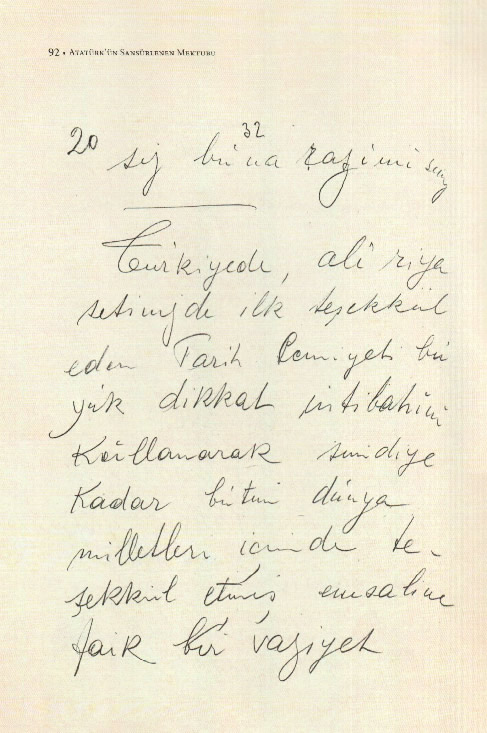 92 • ATATÜRK'ÜN SANSÜRLENEN MEKTUBU
20
32
siz buna razimisiniz
Türkiyede, ali riya
setinizde ilk teşekkül
eden Tarih Cemiyeti bü
yük dikkat intibahini
Kullanarak şimdiye
Kadar bütün dünya
milletleri içinde te-
şekkül etmiş emsaline
faik bir vaziyet